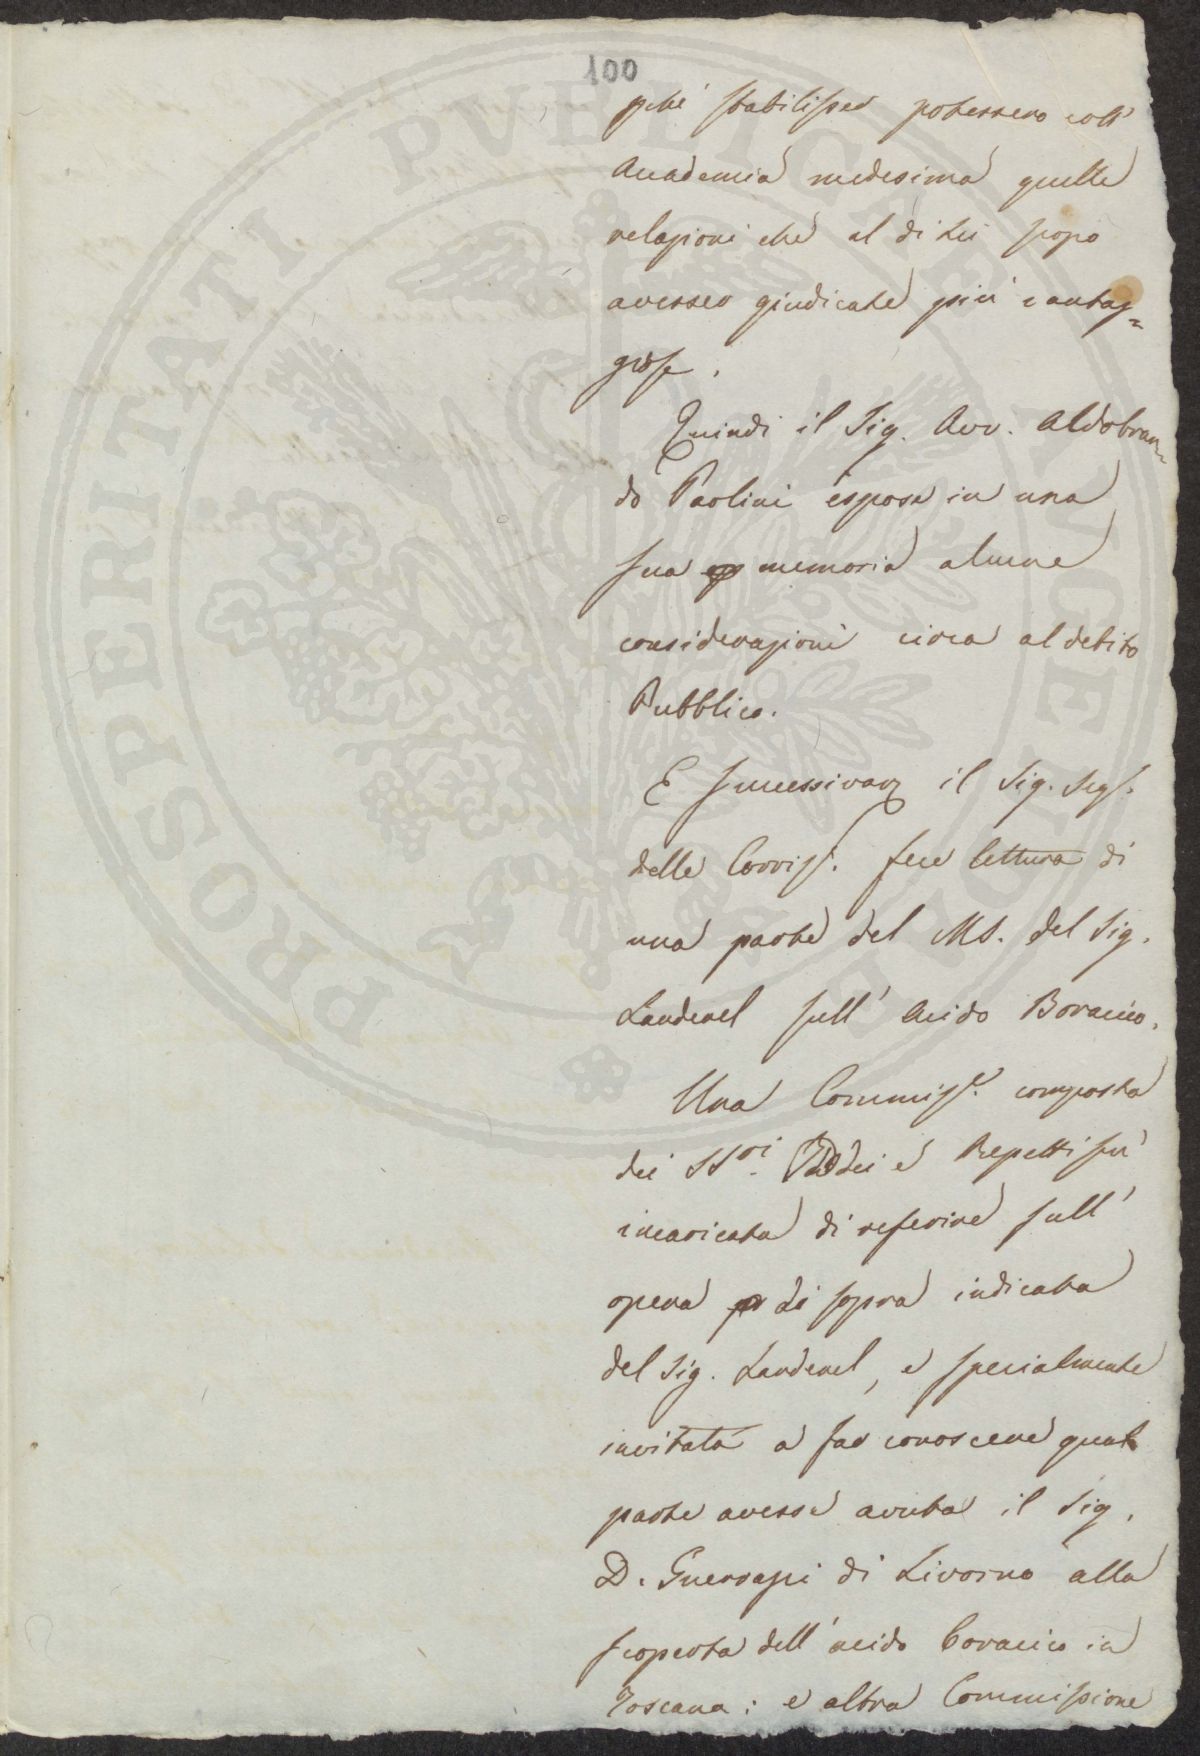 100
pchè stabilisser potessero coll'
Accademia medesima quelle
relazioni che al di Lei scopo
avesser giudicate più vantag=
giose.
Quindi il Sig. Avv. Aldobran=
do Paolini espose in una
sua memoria alcune
considerazioni circa al debito
Pubblico.
E successivam il Sig. Seg.
delle Corrisp. fece lettura di
una parte del MS. del Sig.
Larderel sull' Acido Boracico.
Una Commise. composta
dei SSri. Taddei e Repetti fu
incaricata di referire sull'
opera di sopra indicata
del Sig. Larderel, e specialmente
invitata a far conoscere qual
parte avesse avuta il Sig.
D. Guerrazzi di Livorno alla
scoperta dell' acido boracico in
Toscana: e altra Commissione
PROSPERITATI PVBLICAE AVGENDAE